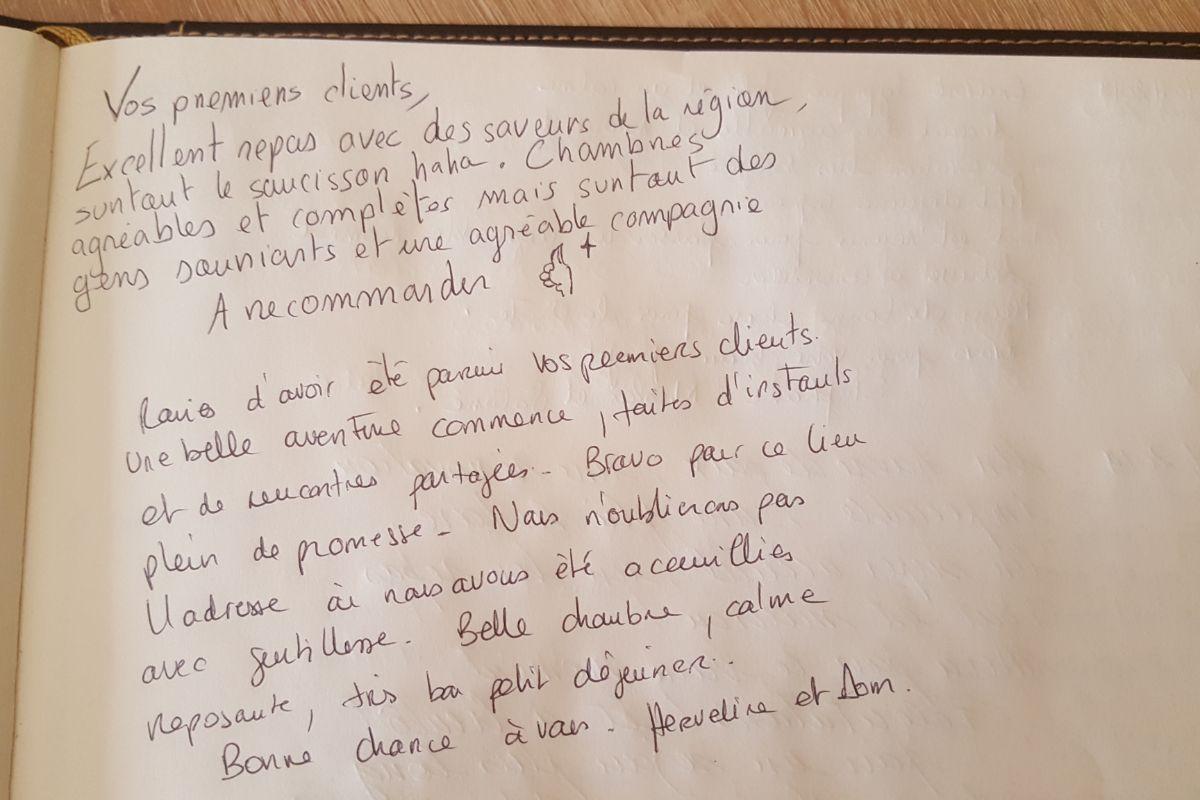 Vos premiers clients,
Excellent repas avec des saveurs de la région,
surtout le saucisson haha. Chambres
agréables et complètes mais surtout des
gens souriants et une agréable compagnie
A recommander +
Ravies d'avoir été parmi vos premiers clients.
Une belle aventure commence, faites d'instants
et de rencontres partagées - Bravo pour ce lieu
plein de promesse - Nous n'oublierons pas
l'adresse où nous avons été accueillies
avec gentillesse. Belle chambre, calme
reposante, très bon petit déjeuner.
Bonne chance à vous - Herveline et Dom.